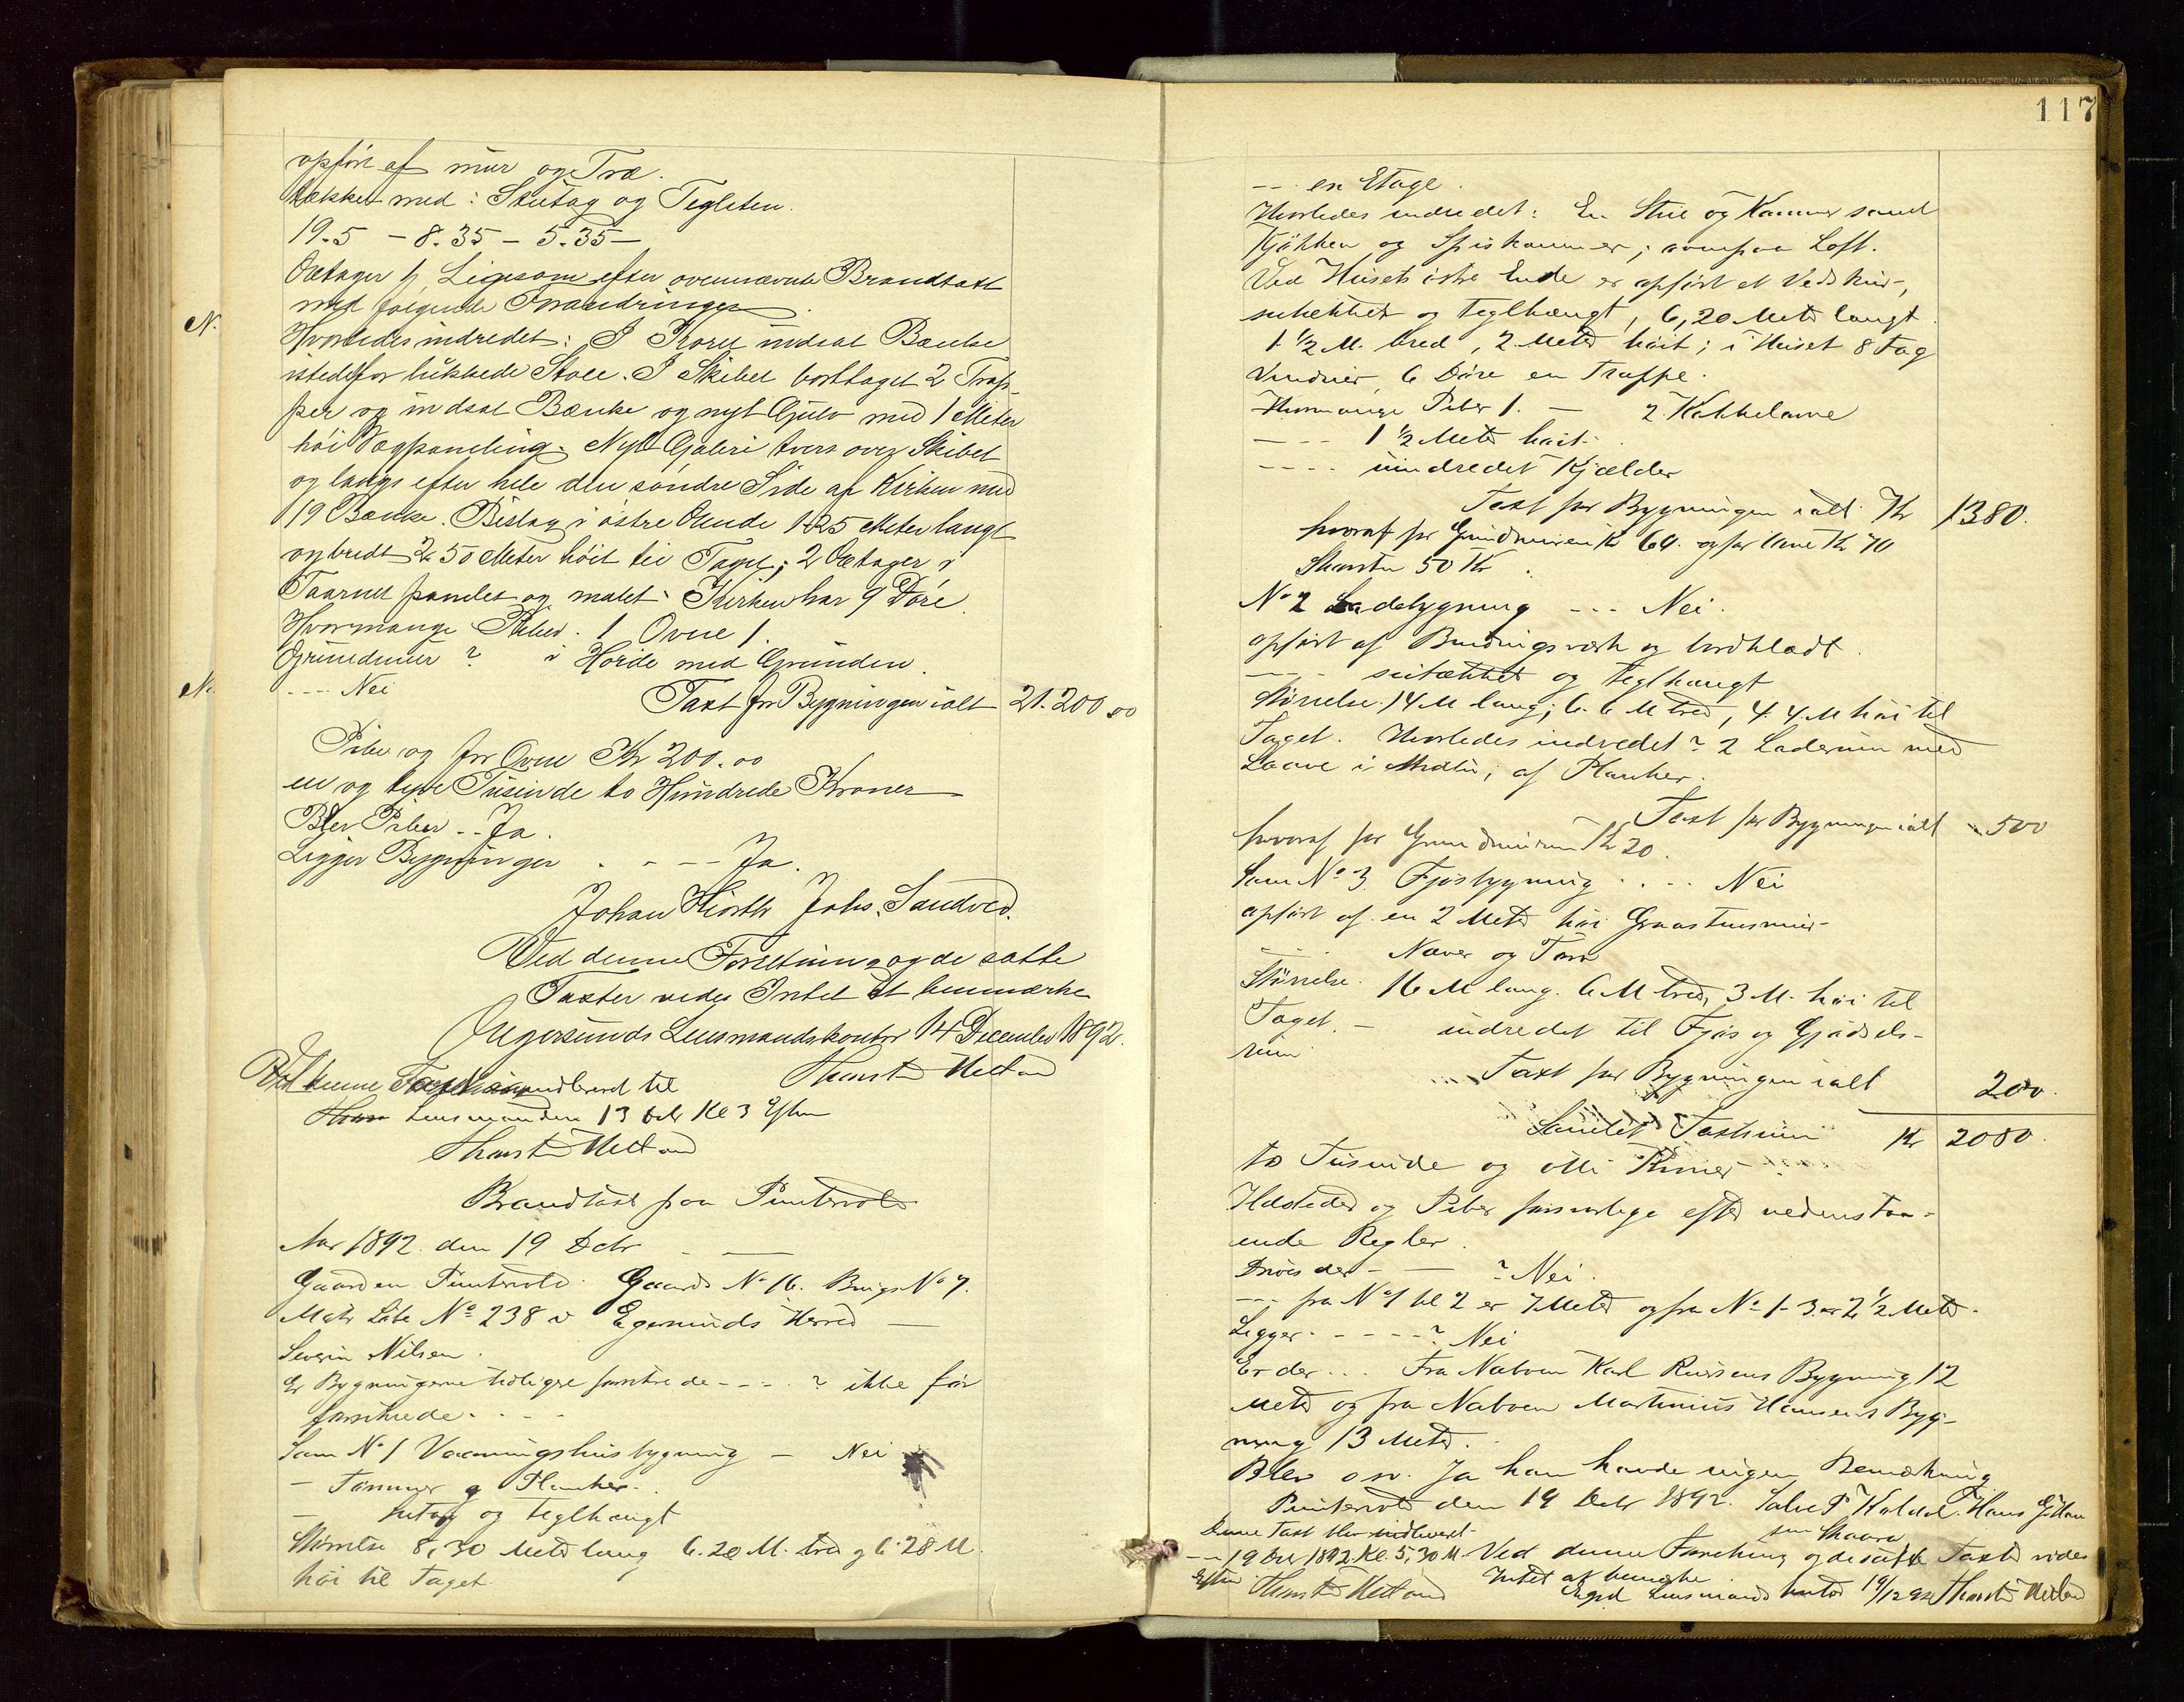 opført af mur og Træ.
Tækket med: Skutag og Teglsten.
19.5 - 8.35 - 5.35 -
Oetager 1, Ligesom efter ovennævnte Brandtaxt
med følgende Forandringer.
N. Hvorledes indredet: I Koret indsat Bænke
istedetfor lukkede Stole. I Skibet borttaget 2 Trap-
per og indsat Bænke og nyt Gulv med 1 Meter
høi Vægpaneling. Nyt Galeri tvers over Skibet
og langs efter hele den søndre Side af Kirken med
19 Bænke. Bislag i østre Ende 1.25 Meter langt
og bredt 2.50 Meter høit til Taget; 2 Oetager i
Taarnet panelet og malet. Kirken har 9 Døre.
Hvormange Piber. 1 Ovne 1.
Grundmur ? i Høide med Grunden.
N. ---- Nei Taxt for Bygningen ialt 21.200.00
Pibe og for Ovne Kr 200.00
en og tyve Tusinde to Hundrede Kroner
Blev Piber -- Ja.
Ligger Bygninger . - -- Ja.
Johan Hiorth Johs. Sandved.
Ved denne Forretning og de satte
Taxter vides Intet at bemærke
Egersunds Lensmandskontor 14 December 1892.
Thorst Hetland
denne indleveret til
Lensmanden 13 Decbr Kl 3 Efterm
Thorst Hetland
Brandtaxt paa Puntervold
Aar 1892 den 19 Dcbr - —
Gaarden Puntervold. Gaards No 16. Brugs No 7.
Matr Løbe No 238 i Egersunds Herred —
Severin Nilsen.
Er Bygningerne tidligere forsikrede - - - - ? ikke før
forsikrede. - - -
Som No 1 Vaaningshusbygning — Nei
— Tømmer og Planker.
— sutag og teglhængt
Størrelse 8,30 Meter lang 6.20 M. bred og 6.28 M.
høi til Taget.
117
-- en Etage.
Hvorledes indredet: En Stue og Kammer samt
Kjøkken og Spiskammer; ovenpaa Loft.
Ved Husets østre Ende er opført et Vedskur,
sutækket og teglhængt, 6,20 Meter langt
1 1/2 M. bred, 2 Meter høit; i Huset 8 Fag
Vinduer, 6 Døre en Trappe.
Hvormange Piber 1. — 2 Kakkelovne
- - - 1 1/2 Meter høit.
---- uindredet Kjælder
Taxt for Bygningen ialt Kr 1380.
hvoraf for Grundmuren Kr 60. og for Ovne Kr 70
Skorsten 50 Kr.
No 2 Ladebygning --- Nei.
opført af Bindingsværk og bordklædt.
--- sutækket og teglhængt
Størrelse. 14 M lang; 6.6 M bred, 4.4. M høi til
Taget. Hvorledes indredet? 2 Laderum med
Laave i Midten; af Planker.
Taxt for Bygningen ialt " 500
hvoraf for Grundmuren Kr 20.
Som No 3. Fjøsbygning . . -- Nei
opført af en 2 Meter høi Graastensmur-
-- - Næver og Torv
Størrelse. 16 M lang. 6 M bred, 3 M. høi til
Taget. — indredet til Fjøs og Gjødsels-
rum
Taxt for Bygningen ialt 200.
Samlet Taxtsum Kr 2080.
to Tusinde og otti Kroner
Ildsteder og Piber forsvarlige efter nedenstaa-
ende Regler.
Drives der - — ? Nei.
--- fra No 1 til 2 er 7 Meter og fra No 1-3 er 2 1/2 Meter
Ligger - - - - - ? Nei
Er der . . . Fra Naboen Karl Bygning 12
Meter og fra Naboen Martinius Hansens Byg-
ning 13 Meter.
Blev osv. Ja han havde ingen Bemærkning
Puntervold den 19 Dcbr 1892. Salve Hans
Denne Taxt blev indleveret
-- 19 Dcr 1892 Kl. 5,30 M. Ved denne Forretning og de satte Taxter vides
Eftm. Thorst Hetland Intet at bemærke
Egsd Lensmands Kontor 19/12 92 Thorst Hetland